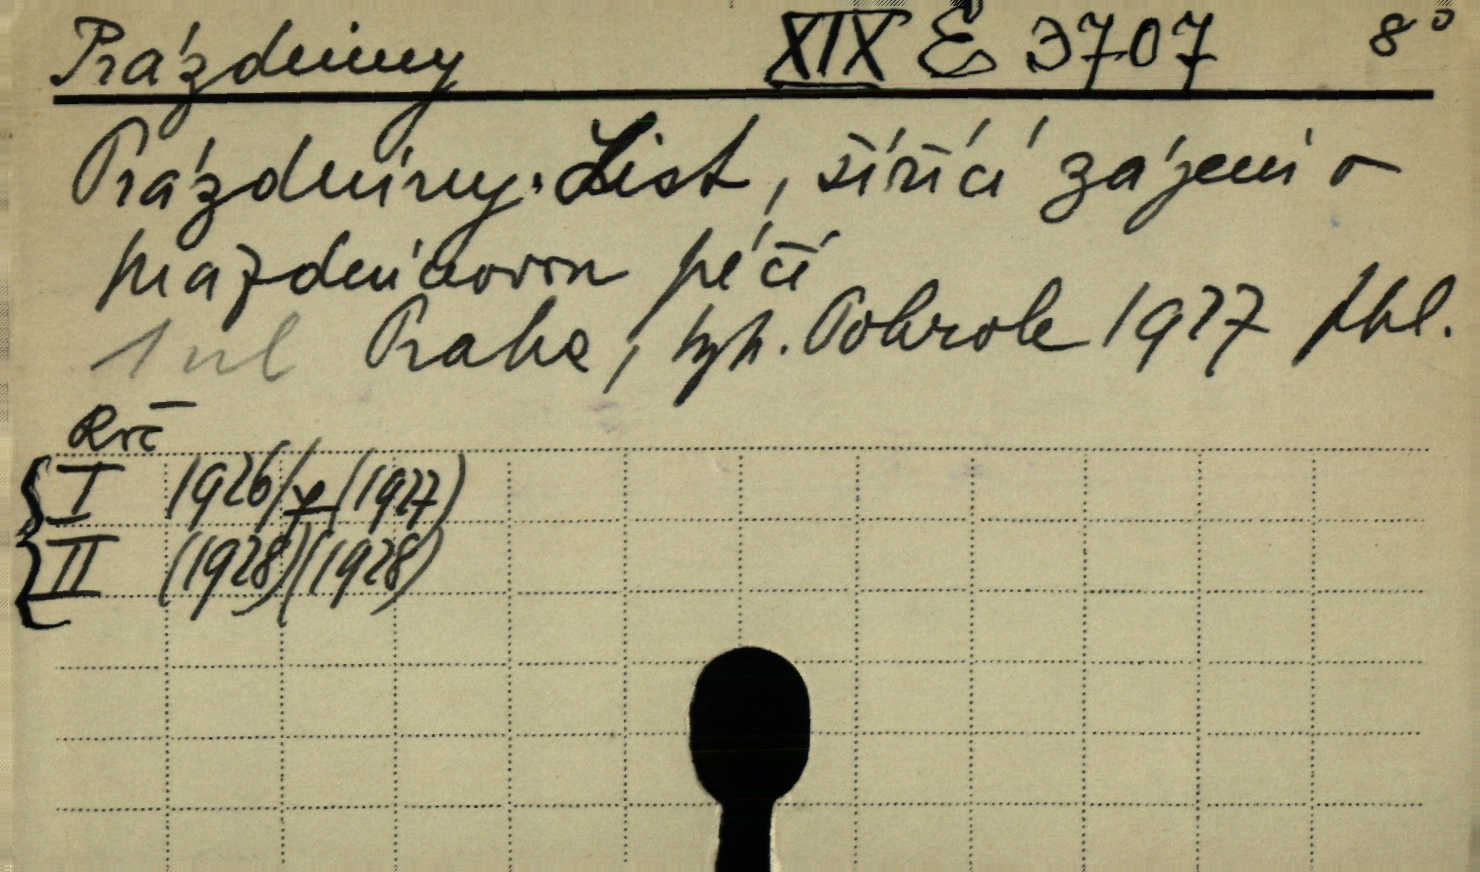 Prázdniny XIX E 3707 8°
Prázdniny. List, šířící zájem o
prázdninovou péči
1 vl Praha, typ. Pokrok 1927 fbl.
Roč
I 1926/7 (1927)
II (1928)(1928)